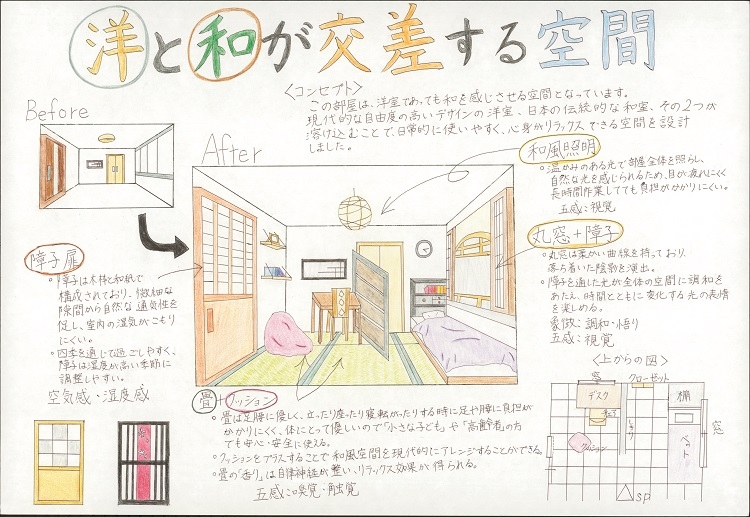 洋と和が交差する空間
〈コンセプト〉
この部屋は、洋室であっても和を感じさせる空間となっています。
現代的な自由度の高いデザインの洋室、日本の伝統的な和室、その2つが
溶け込むことで、日常的に使いやすく、心身がリラックスできる空間を設計
しました。
Before
After
和風照明
。温かみのある光で部屋全体を照らし、
自然な光を感じられるため、目が疲れにくく
長時間作業してても負担がかかりにくい。
五感:視覚
丸窓+障子
。丸窓は柔かい曲線を持っており、
落ち着いた陰影を演出。
。障子を通した光が全体の空間に調和を
あたえ、時間とともに変化する光の表情
を楽しめる。
象徴:調和・悟り
五感:視覚
障子扉
。障子は木枠と和紙で
構成されており、微細な
隙間から自然な通気性を
促し、室内の湿気がこもり
にくい。
。四季を通じて過ごしやすく、
障子は湿度が高い季節に
調整しやすい。
空気感・湿度感
畳+クッション
。畳は足腰に優しく、立ったり座ったり寝転がったりする時に足や腰に負担が
かかりにくく、体にとって優しいので「小さな子ども」や「高齢者」の方
でも安心・安全に使える。
。クッションをプラスすることで和風空間を現代的にアレンジすることができる。
。畳の「香り」は自律神経が整い、リラックス効果が得られる。
五感:嗅覚・触覚
〈上からの図〉
窓
クローゼット
デスク
棚
クッション
ベット
窓
SP